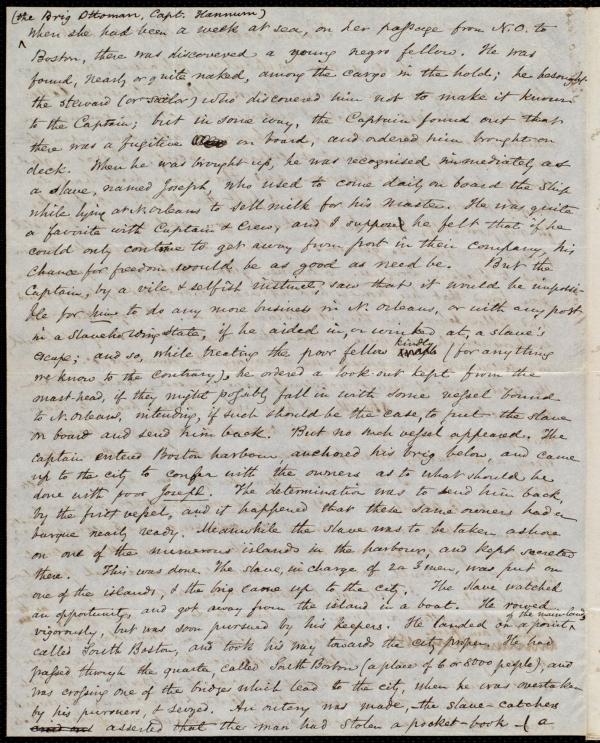 (the Brig Ottoman, Capt. Hannum)
When she had been a week at sea, on her passage from N.O. to
Boston, there was discovered a young negro fellow. He was
found, nearly or quite naked, among the cargo in the hold; he besought
the steward (or sailor) who discovered him not to make it known
to the Captain; but in some way, the Captain found out that
there was a fugitive on board, and ordered him brought on
deck. When he was brought up, he was recognised immediately as
a slave, named Joseph, who used to come daily on board the Ship
while lying at N. Orleans to sell milk for his master. He was quite
a favorite with Captain & Crew, and I suppose he felt that if he
could only contrive to get away from port in their company, his
chance for freedom would be as good as need be. But the
Captain, by a vile & selfish instinct, saw that it would be impossi-
ble for him to do any more business in N. Orleans, or with any port
in a Slaveholding State, if he aided in, or winked at, a slave's
escape; and so, while treating the poor fellow kindly (for anything
we know to the contrary), he ordered a look-out kept from the
mast-head, if they might possibly fall in with some vessel bound
to N. Orleans, intending, if such should be the case, to put the slave
on board and send him back. But no such vessel appeared. The
Captain entered Boston harbour, anchored his brig below, and came
up to the city to confer with the owners as to what should be
done with poor Joseph. The determination was to send him back,
by the first vessel, and it happened that these same owners had a
barque nearly ready. Meanwhile the slave was to be taken ashore
on one of the numerous islands in the harbour, and kept secreted
there. This was done. The slave, in charge of 2 or 3 men, was put on
one of the islands, & the brig came up to the city. The slave watched
an opportunity, and got away from the island in a boat. He rowed
vigorously, but was soon pursued by his keepers. He landed on a point of the main land,
called South Boston, and took his way towards the city proper. He had
passed through the quarter called South Boston (a place of 6 or 8000 people), and
was crossing one of the bridges which lead to the city, when he was overtaken
by his pursuers, & seized. An outcry was made, the slave-catchers
asserted that the man had stolen a pocket-book – (a